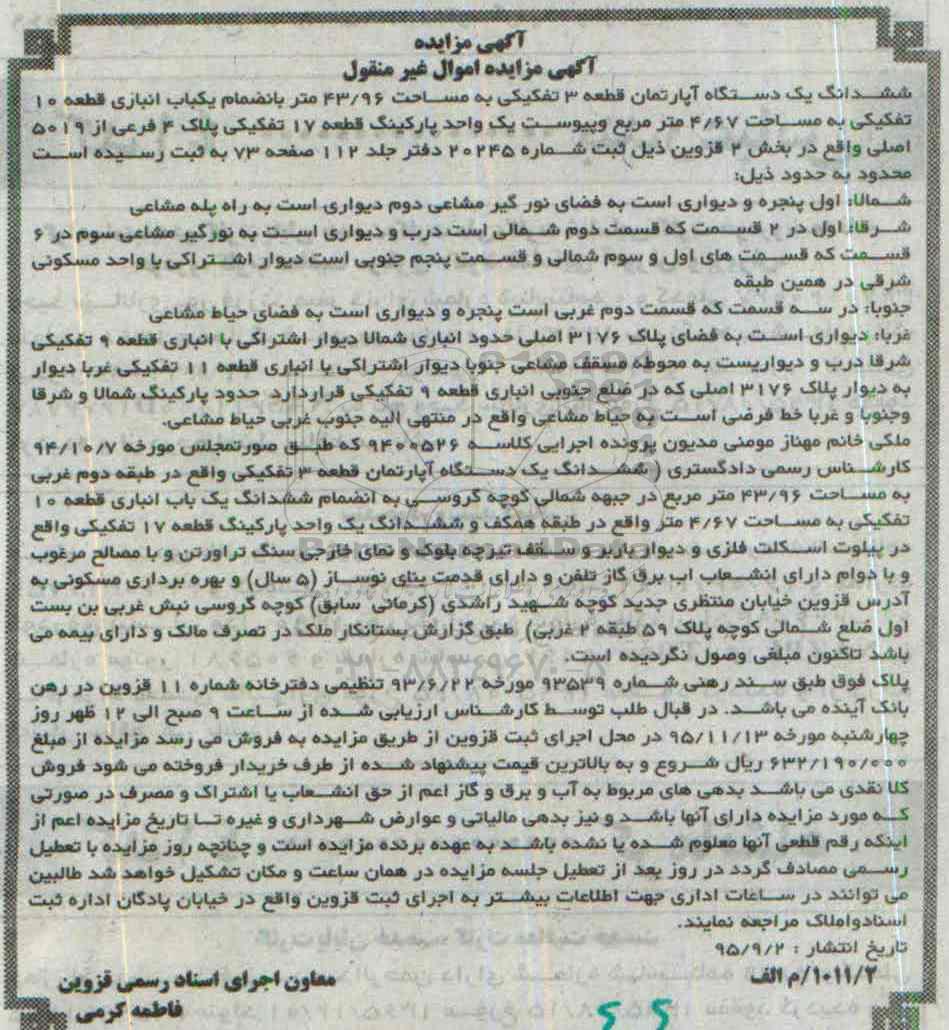 آگهی مزایده
آگهی مزایده اموال غیر منقول
ششدانگ یک دستگاه آپارتمان قطعه ۳ تفکیکی به مساحت ۴۳/۹۶ متر بانضمام یکباب انباری قطعه ۱۰
تفکیکی به مساحت ۴/۶۷ متر مربع وپیوست یک واحد پارکینگ قطعه ۱۷ تفکیکی پلاک ۴ فرعی از ۵۰۱۹
اصلی واقع در بخش ۲ قزوین ذیل ثبت شماره ۲۰۲۴۵ دفتر جلد ۱۱۲ صفحه ۷۳ به ثبت رسیده است
محدود به حدود ذیل:
شمالا: اول پنجره و دیواری است به فضای نور گیر مشاعی دوم دیواری است به راه پله مشاعی
شرقا: اول در ۲ قسمت که قسمت دوم شمالی است درب و دیواری است به نورگیر مشاعی سوم در ۶
قسمت که قسمت های اول و سوم شمالی و قسمت پنجم جنوبی است دیوار اشتراکی با واحد مسکونی
شرقی در همین طبقه
جنوبا: در سه قسمت که قسمت دوم غربی است پنجره و دیواری است به فضای حیاط مشاعی
غربا: دیواری است به فضای پلاک ۳۱۷۶ اصلی حدود انباری شمالا دیوار اشتراکی با انباری قطعه ۹ تفکیکی
شرقا درب و دیواریست به محوطه مسقف مشاعی جنوبا دیوار اشتراکی با انباری قطعه ۱۱ تفکیکی غربا دیوار
به دیوار پلاک ۳۱۷۶ اصلی که در ضلع جنوبی انباری قطعه ۹ تفکیکی قراردارد حدود پارکینگ شمالا و شرقا
وجنوبا و غربا خط فرضی است به حیاط مشاعی واقع در منتهی الیه جنوب غربی حیاط مشاعی.
ملکی خانم مهناز مومنی مدیون پرونده اجرایی کلاسه ۹۴۰۰۵۲۶ که طبق صورتمجلس مورخه ۹۴/۱۰/۷
کارشناس رسمی دادگستری ( ششدانگ یک دستگاه آپارتمان قطعه ۳ تفکیکی واقع در طبقه دوم غربی
به مساحت ۴۳/۹۶ متر مربع در جبهه شمالی کوچه گروسی به انضمام ششدانگ یک باب انباری قطعه ۱۰
تفکیکی به مساحت ۴/۶۷ متر واقع در طبقه همکف و ششدانگ یک واحد پارکینگ قطعه ۱۷ تفکیکی واقع
در پیلوت اسکلت فلزی و دیوار باربر و سقف تیرچه بلوک و نمای خارجی سنگ تراورتن و با مصالح مرغوب
و با دوام دارای انشعاب اب برق گاز تلفن و دارای قدمت بنای نوساز (۵ سال) و بهره برداری مسکونی به
آدرس قزوین خیابان منتظری جدید کوچه شهید راشدی (کرمانی سابق) کوچه گروسی نبش غربی بن بست
اول ضلع شمالی کوچه پلاک ۵۹ طبقه ۲ غربی) طبق گزارش بستانکار ملک در تصرف مالک و دارای بیمه می
باشد تاکنون مبلغی وصول نگردیده است.
پلاک فوق طبق سند رهنی شماره ۹۳۵۳۹ مورخه ۹۳/۶/۲۲ تنظیمی دفترخانه شماره ۱۱ قزوین در رهن
بانک آینده می باشد. در قبال طلب توسط کارشناس ارزیابی شده از ساعت ۹ صبح الی ۱۲ ظهر روز
چهارشنبه مورخه ۹۵/۱۱/۱۳ در محل اجرای ثبت قزوین از طریق مزایده به فروش می رسد مزایده از مبلغ
۶۳۲/۱۹۰/۰۰۰ ریال شروع و به بالاترین قیمت پیشنهاد شده از طرف خریدار فروخته می شود فروش
کلا نقدی می باشد بدهی های مربوط به آب و برق و گاز اعم از حق انشعاب یا اشتراک و مصرف در صورتی
که مورد مزایده دارای آنها باشد و نیز بدهی مالیاتی و عوارض شهرداری و غیره تا تاریخ مزایده اعم از
اینکه رقم قطعی آنها معلوم شده یا نشده باشد به عهده برنده مزایده است و چنانچه روز مزایده با تعطیل
رسمی مصادف گردد در روز بعد از تعطیل جلسه مزایده در همان ساعت و مکان تشکیل خواهد شد طالبین
می توانند در ساعات اداری جهت اطلاعات بیشتر به اجرای ثبت قزوین واقع در خیابان پادگان اداره ثبت
اسنادواملاک مراجعه نمایند.
تاریخ انتشار : ۹۵/۹/۲
۱۰۱۱/۲/م الف
معاون اجرای اسناد رسمی قزوین
فاطمه کرمی